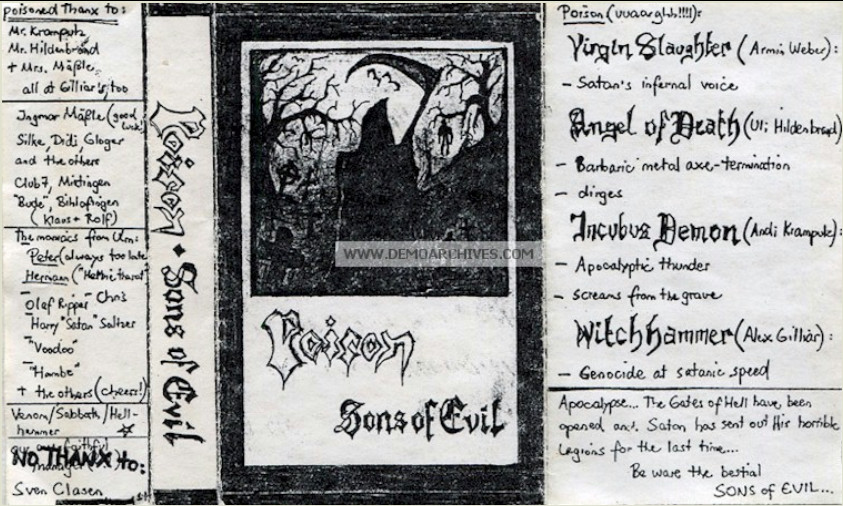 poisoned Thanx to:
Mr. Kramputz,
Mr. Hildenbrand
+ Mrs. Mäßle,
all at Gilliar's, too
Ingmar Mäßle (good luck!)
Silke, Didi, Gloger
and the others
Club 7,
"Bude",
(Klaus + Rolf)
The maniacs from Ulm:
Peter (always too late)
Hermann
"Olaf Ripper" Chris
"Harry "Satan" Saltzer
"Voodoo"
"Hombe"
+ the others (cheers!)
Venom/Sabbath/Hell-
hammer
our faithful
manager
NO THANX to:
Sven Clasen
Poison + Sons of Evil
WWW.DEMOARCHIVES.COM
Poison
Sons of Evil
Poison (uuaarghh!!!!):
Virgin Slaughter (Armin Weber):
- Satan's infernal voice
Angel of Death (Uli Hildenbrand)
- Barbaric metal axe-termination
- dirges
Incubus Demon (Andi Kramputz):
- Apocalyptic thunder
- screams from the grave
Witchhammer (Alex Gilliar):
- Genocide at satanic speed
Apocalypse... The Gates of Hell have been
opened and. Satan has sent out His horrible
Legions for the last time...
Be ware the bestial
SONS of EVIL...